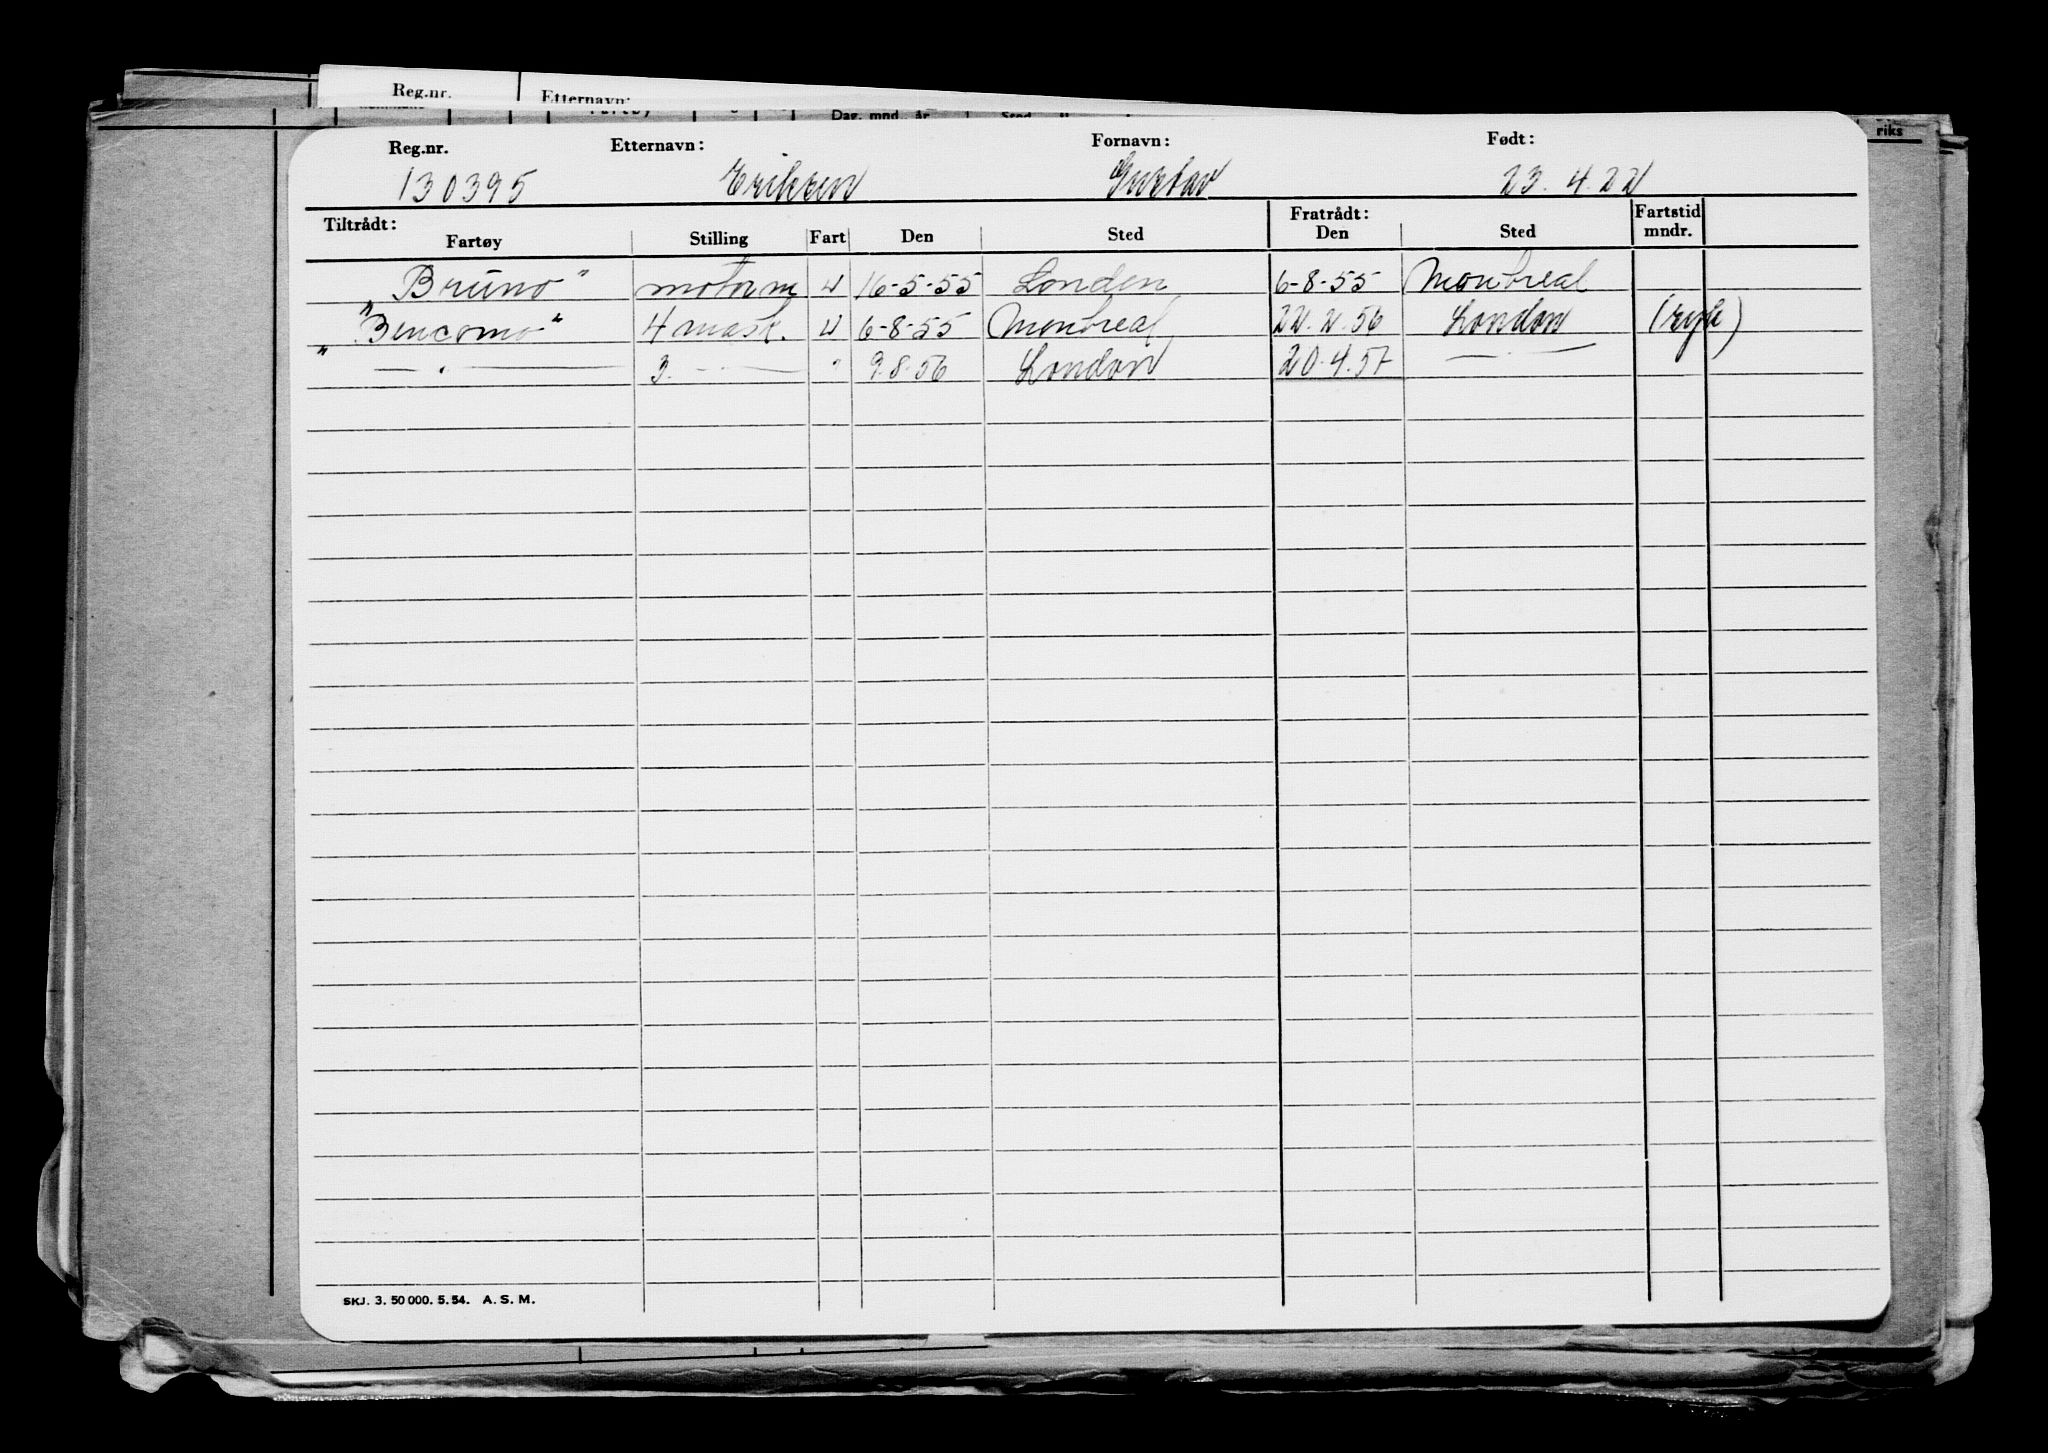 Reg.nr. Etternavn:
Fartøy Dag. mnd. år Sted
riks
Reg.nr. Etternavn: Fornavn: Født:
130395 Eriksen Gustav 23.4.22
Tiltrådt: Fratrådt: Fartstid
Fartøy Stilling Fart Den Sted Den Sted mndr.
"Bruno" motorm U 16-5-55 London 6-8-55 Montreal
"Bencomo" 4 mask. U 6-8-55 Montreal 22.2.56 London
" — " — 3. — " — " 9.8.56 London 20.4.57 — " —
SKJ. 3. 50 000. 5. 54. A. S. M.